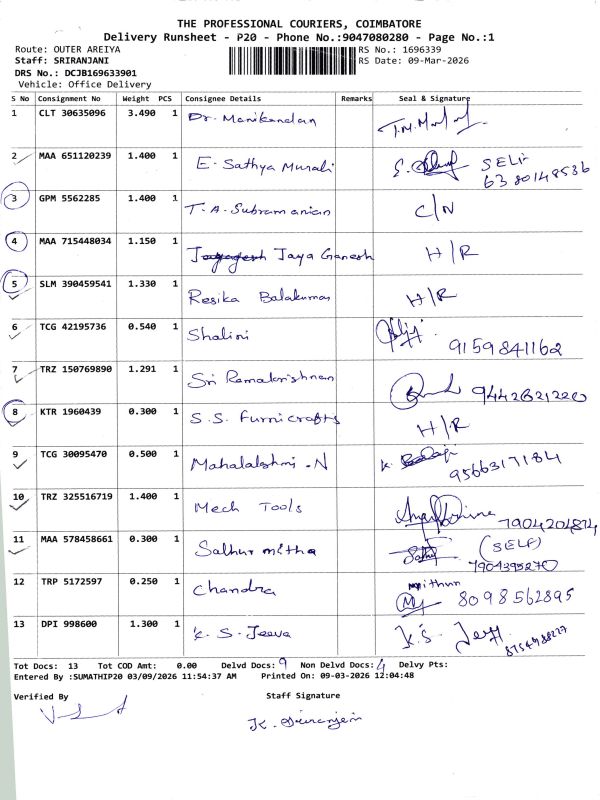 THE PROFESSIONAL COURIERS, COIMBATORE
Delivery Runsheet - P20 - Phone No.:9047080280 - Page No.:1
Route: OUTER AREIYA RS No.: 1696339
Staff: SRIRANJANI RS Date: 09-Mar-2026
DRS No.: DCJB169633901
Vehicle: Office Delivery
S No Consignment No Weight PCS Consignee Details Remarks Seal & Signature
1 CLT 30635096 3.490 1 Dr. Manikandan
2 MAA 651120239 1.400 1 E. Sathya Murali SELF 6380148536
3 GPM 5562285 1.400 1 T. A. Subramanian C/N
4 MAA 715448034 1.150 1 Jaya Ganesh H/R
5 SLM 390459541 1.330 1 Resika Balakumar H/R
6 TCG 42195736 0.540 1 Shalini 9159841162
7 TRZ 150769890 1.291 1 Sri Ramakrishnan
8 KTR 1960439 0.300 1 S.S. Furnicrafts H/R
9 TCG 30095470 0.500 1 Mahalalshmi .N 9566317184
10 TRZ 325516719 1.400 1 Mech Tools
11 MAA 578458661 0.300 1 (SELF) 7904395270
12 TRP 5172597 0.250 1 Chandra Mithun 8098562895
13 DPI 998600 1.300 1 K. S. Jeeva K.S.
Tot Docs: 13 Tot COD Amt: 0.00 Delvd Docs: 9 Non Delvd Docs: 4 Delvy Pts:
Entered By :SUMATHIP20 03/09/2026 11:54:37 AM Printed On: 09-03-2026 12:04:48
Verified By Staff Signature